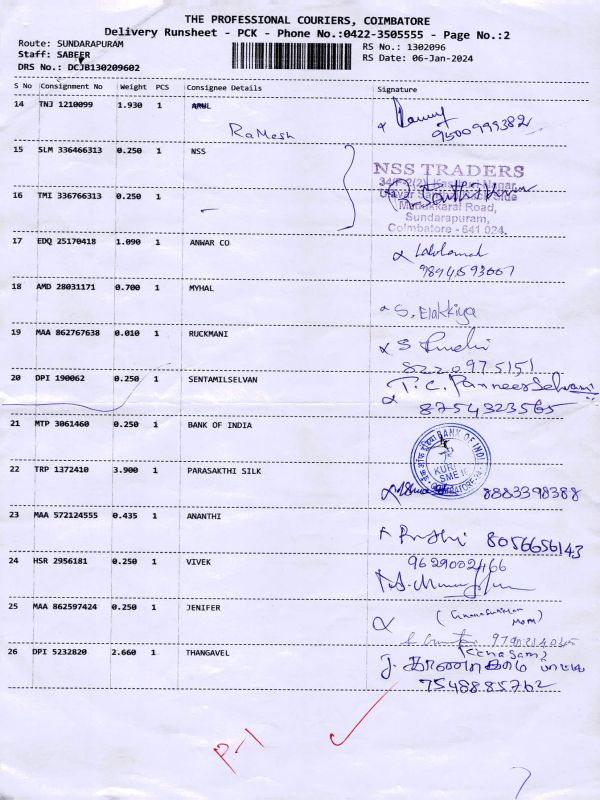 THE PROFESSIONAL COURIERS, COIMBATORE
Delivery Runsheet - PCK - Phone No.:0422-3505555 - Page No.:2
Route: SUNDARAPURAM
Staff: SABEER
DRS No.: DCJB130209602
RS No.: 1302096
RS Date: 06-Jan-2024
S No Consignment No Weight PCS Consignee Details Signature
14 TNJ 1210099 1.930 1
RaMesh
9500999382
15 SLM 336466313 0.250 1 NSS
NSS TRADERS
16 TMI 336766313 0.250 1
Madukkarai Road,
Sundarapuram,
Coimbatore - 641 024.
17 EDQ 25170418 1.090 1 ANWAR CO
18 AMD 28031171 0.700 1 MYHAL
S. Elakkiya
19 MAA 862767638 0.010 1 RUCKMANI
8220975151
20 DPI 190062 0.250 1 SENTAMILSELVAN
T.C. PanneerSelvam
8754323565
21 MTP 3061460 0.250 1 BANK OF INDIA
BANK OF INDIA
22 TRP 1372410 3.900 1 PARASAKTHI SILK
8883398388
23 MAA 572124555 0.435 1 ANANTHI
8056656143
24 HSR 2956181 0.250 1 VIVEK
9629002466
25 MAA 862597424 0.250 1 JENIFER
26 DPI 5232820 2.660 1 THANGAVEL
7548885762
P-1